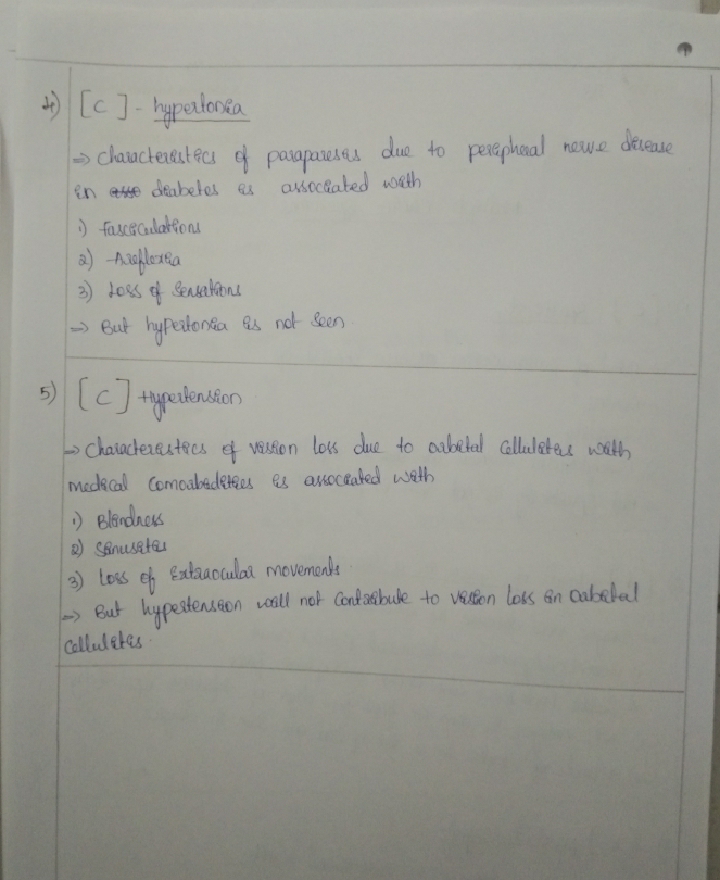 4) [C] - hypertonia
⇒ Characteristics of paraparesis due to peripheral nerve disease
in diabetes is associated with
1) fasciculations
2) Areflexia
3) Loss of Sensations
⇒ But hypertonia is not seen.
5) [C] Hypertension
⇒ Characteristics of vision loss due to orbital cellulites with
medical comorbidities is associated with
1) Blindness
2) Sinusitis
3) Loss of Extraocular movements.
⇒ But hypertension will not contribute to vision loss in Orbital
Cellulites.